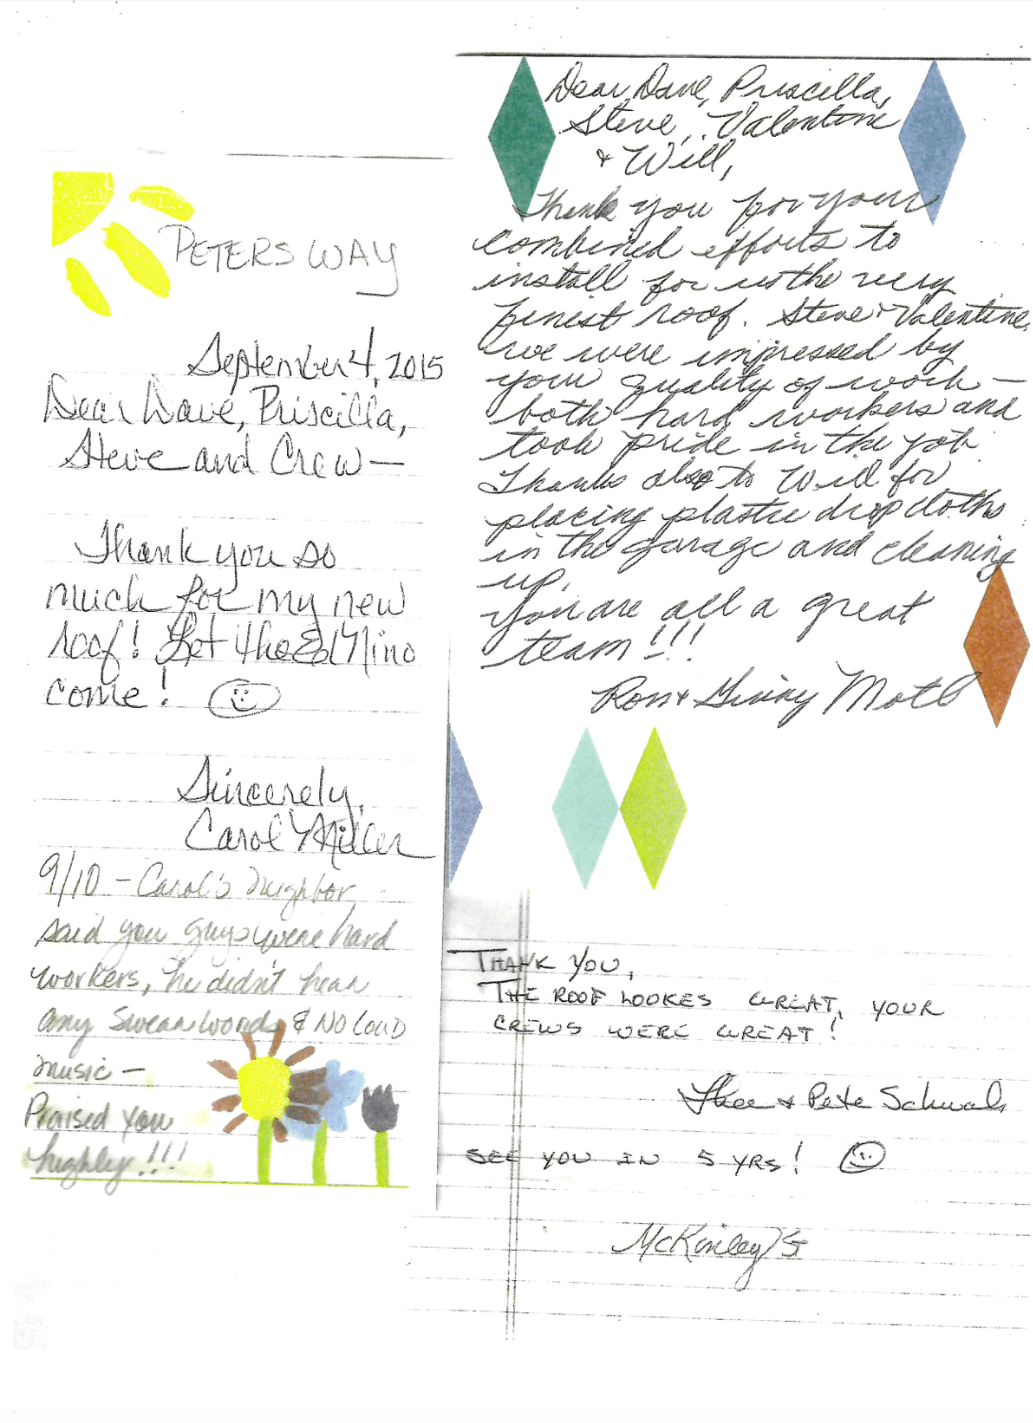 PETERS WAY
September 4, 2015
Dear Dave, Priscilla,
Steve and Crew —
Thank you so
much for my new
roof! Let the El Nino
come! ☺
Sincerely,
Carol Miller
9/10 – Carol's neighbor
said you guys were hard
workers, he didn't hear
any swear words & NO LOUD
music –
Praised you
highly!!!
Dear Dave, Priscilla,
Steve, Valentine
& Will,
Thank you for your
combined efforts to
install for us the very
finest roof. Steve & Valentine
we were impressed by
your quality of work –
both hard workers and
took pride in the job.
Thanks also to Will for
placing plastic drop cloths
in the garage and cleaning
up.
You are all a great
team!!!
Ron & Ginny Motl
THANK YOU,
THE ROOF LOOKES GREAT, YOUR
CREWS WERE GREAT!
& Pete Schwab
SEE YOU IN 5 YRS! ☺
McKinley St